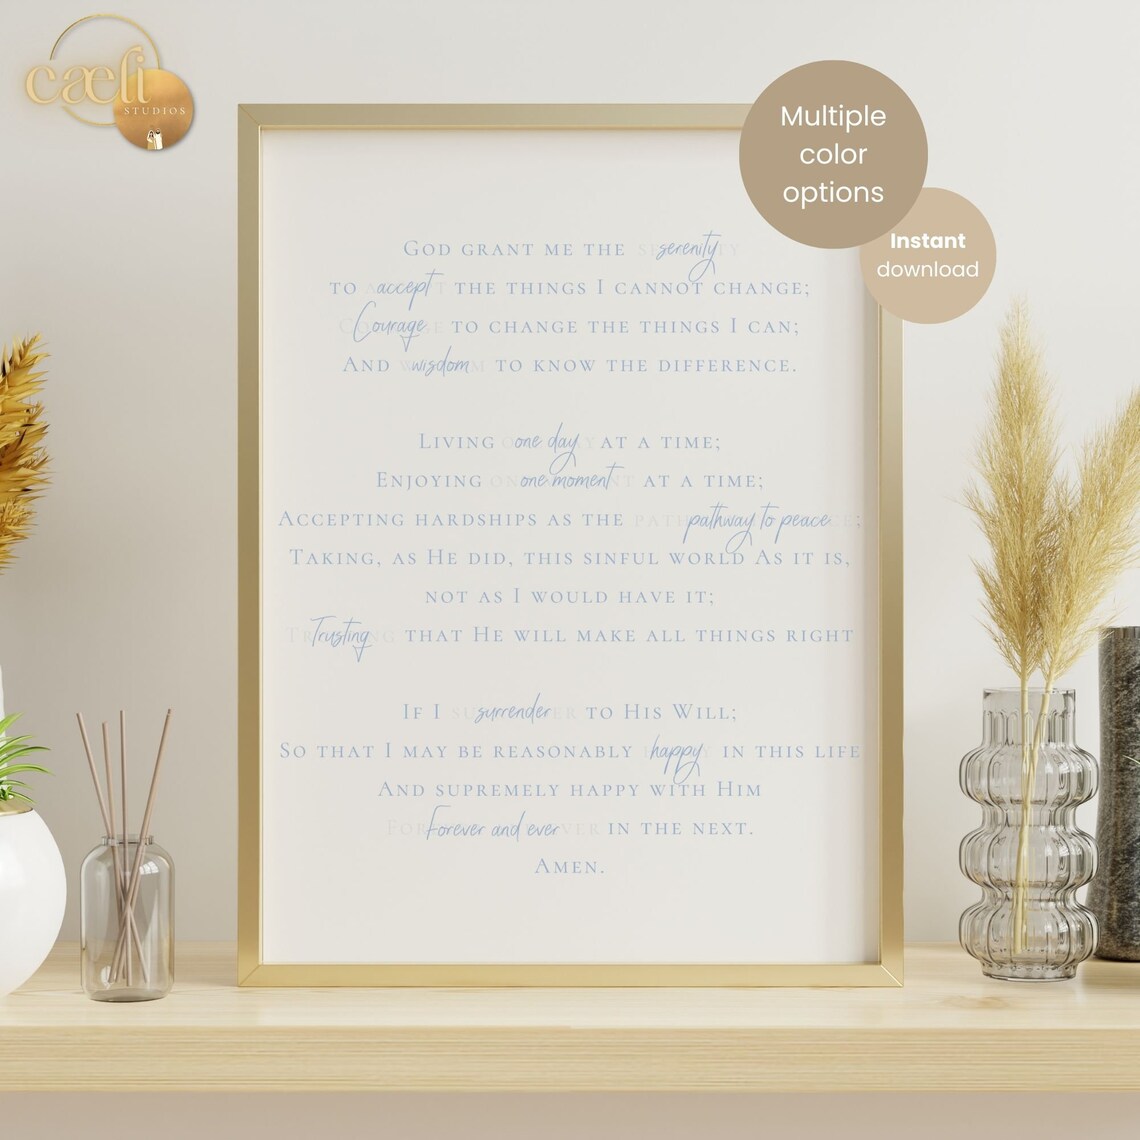 cæli
STUDIOS
Multiple
color
options
Instant
download
God grant me the serenity
to accept the things I cannot change;
Courage to change the things I can;
And wisdom to know the difference.
Living one day at a time;
Enjoying one moment at a time;
Accepting hardships as the pathway to peace;
Taking, as He did, this sinful world As it is,
not as I would have it;
Trusting that He will make all things right
If I surrender to His Will;
So that I may be reasonably happy in this life
And supremely happy with Him
Forever and ever in the next.
Amen.